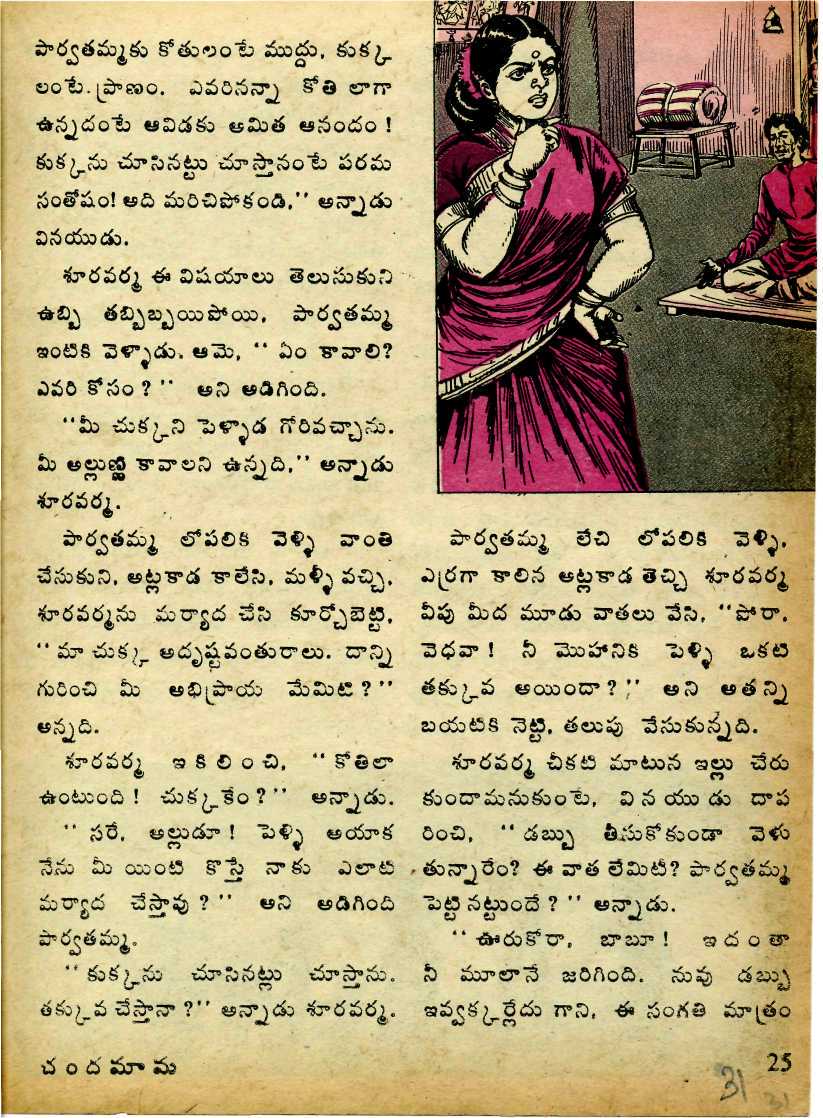 పార్వతమ్మకు కోతులంటే ముద్దు, కుక్క
లంటే ప్రాణం. ఎవరినన్నా కోతి లాగా
ఉన్నదంటే ఆవిడకు అమిత ఆనందం!
కుక్కను చూసినట్టు చూస్తానంటే పరమ
సంతోషం! అది మరిచిపోకండి,'' అన్నాడు
వినయుడు.
శూరవర్మ ఈ విషయాలు తెలుసుకుని
ఉబ్బి తబ్బిబ్బయిపోయి, పార్వతమ్మ
ఇంటికి వెళ్ళాడు. ఆమె, ‘‘ ఏం కావాలి?
ఎవరి కోసం?'' అని అడిగింది.
‘‘మీ చుక్కని పెళ్ళాడ గోరివచ్చాను.
మీ అల్లుణ్ణి కావాలని ఉన్నది,'' అన్నాడు
శూరవర్మ.
పార్వతమ్మ లోపలికి వెళ్ళి వాంతి
చేసుకుని, అట్లకాడ కాలేసి, మళ్ళీ వచ్చి,
శూరవర్మను మర్యాద చేసి కూర్చోబెట్టి,
‘‘మా చుక్క అదృష్టవంతురాలు. దాన్ని
గురించి మీ అభిప్రాయ మేమిటి?''
అన్నది.
శూరవర్మ ఇకిలించి, ‘‘కోతిలా
ఉంటుంది! చుక్కకేం?'' అన్నాడు.
‘‘ సరే, అల్లుడూ! పెళ్ళి అయాక
నేను మీ యింటి కొస్తే నాకు ఎలాటి
మర్యాద చేస్తావు?'' అని అడిగింది
పార్వతమ్మ.
‘‘కుక్కను చూసినట్లు చూస్తాను.
తక్కువ చేస్తానా?'' అన్నాడు శూరవర్మ.
పార్వతమ్మ లేచి లోపలికి వెళ్ళి,
ఎర్రగా కాలిన అట్లకాడ తెచ్చి శూరవర్మ
వీపు మీద మూడు వాతలు వేసి, ‘‘పోరా,
వెధవా! నీ మొహానికి పెళ్ళి ఒకటి
తక్కువ అయిందా?'' అని అతన్ని
బయటికి నెట్టి, తలుపు వేసుకున్నది.
శూరవర్మ చీకటి మాటున ఇల్లు చేరు
కుందామనుకుంటే, వినయుడు దాప
రించి, ‘‘డబ్బు తీసుకోకుండా వెళు
తున్నారేం? ఈ వాత లేమిటి? పార్వతమ్మ
పెట్టి నట్టుందే?'' అన్నాడు.
‘‘ఊరుకోరా, బాబూ! ఇదంతా
నీ మూలానే జరిగింది. నువు డబ్బు
ఇవ్వక్కర్లేదు గాని, ఈ సంగతి మాత్రం
చందమామ
25
31
31